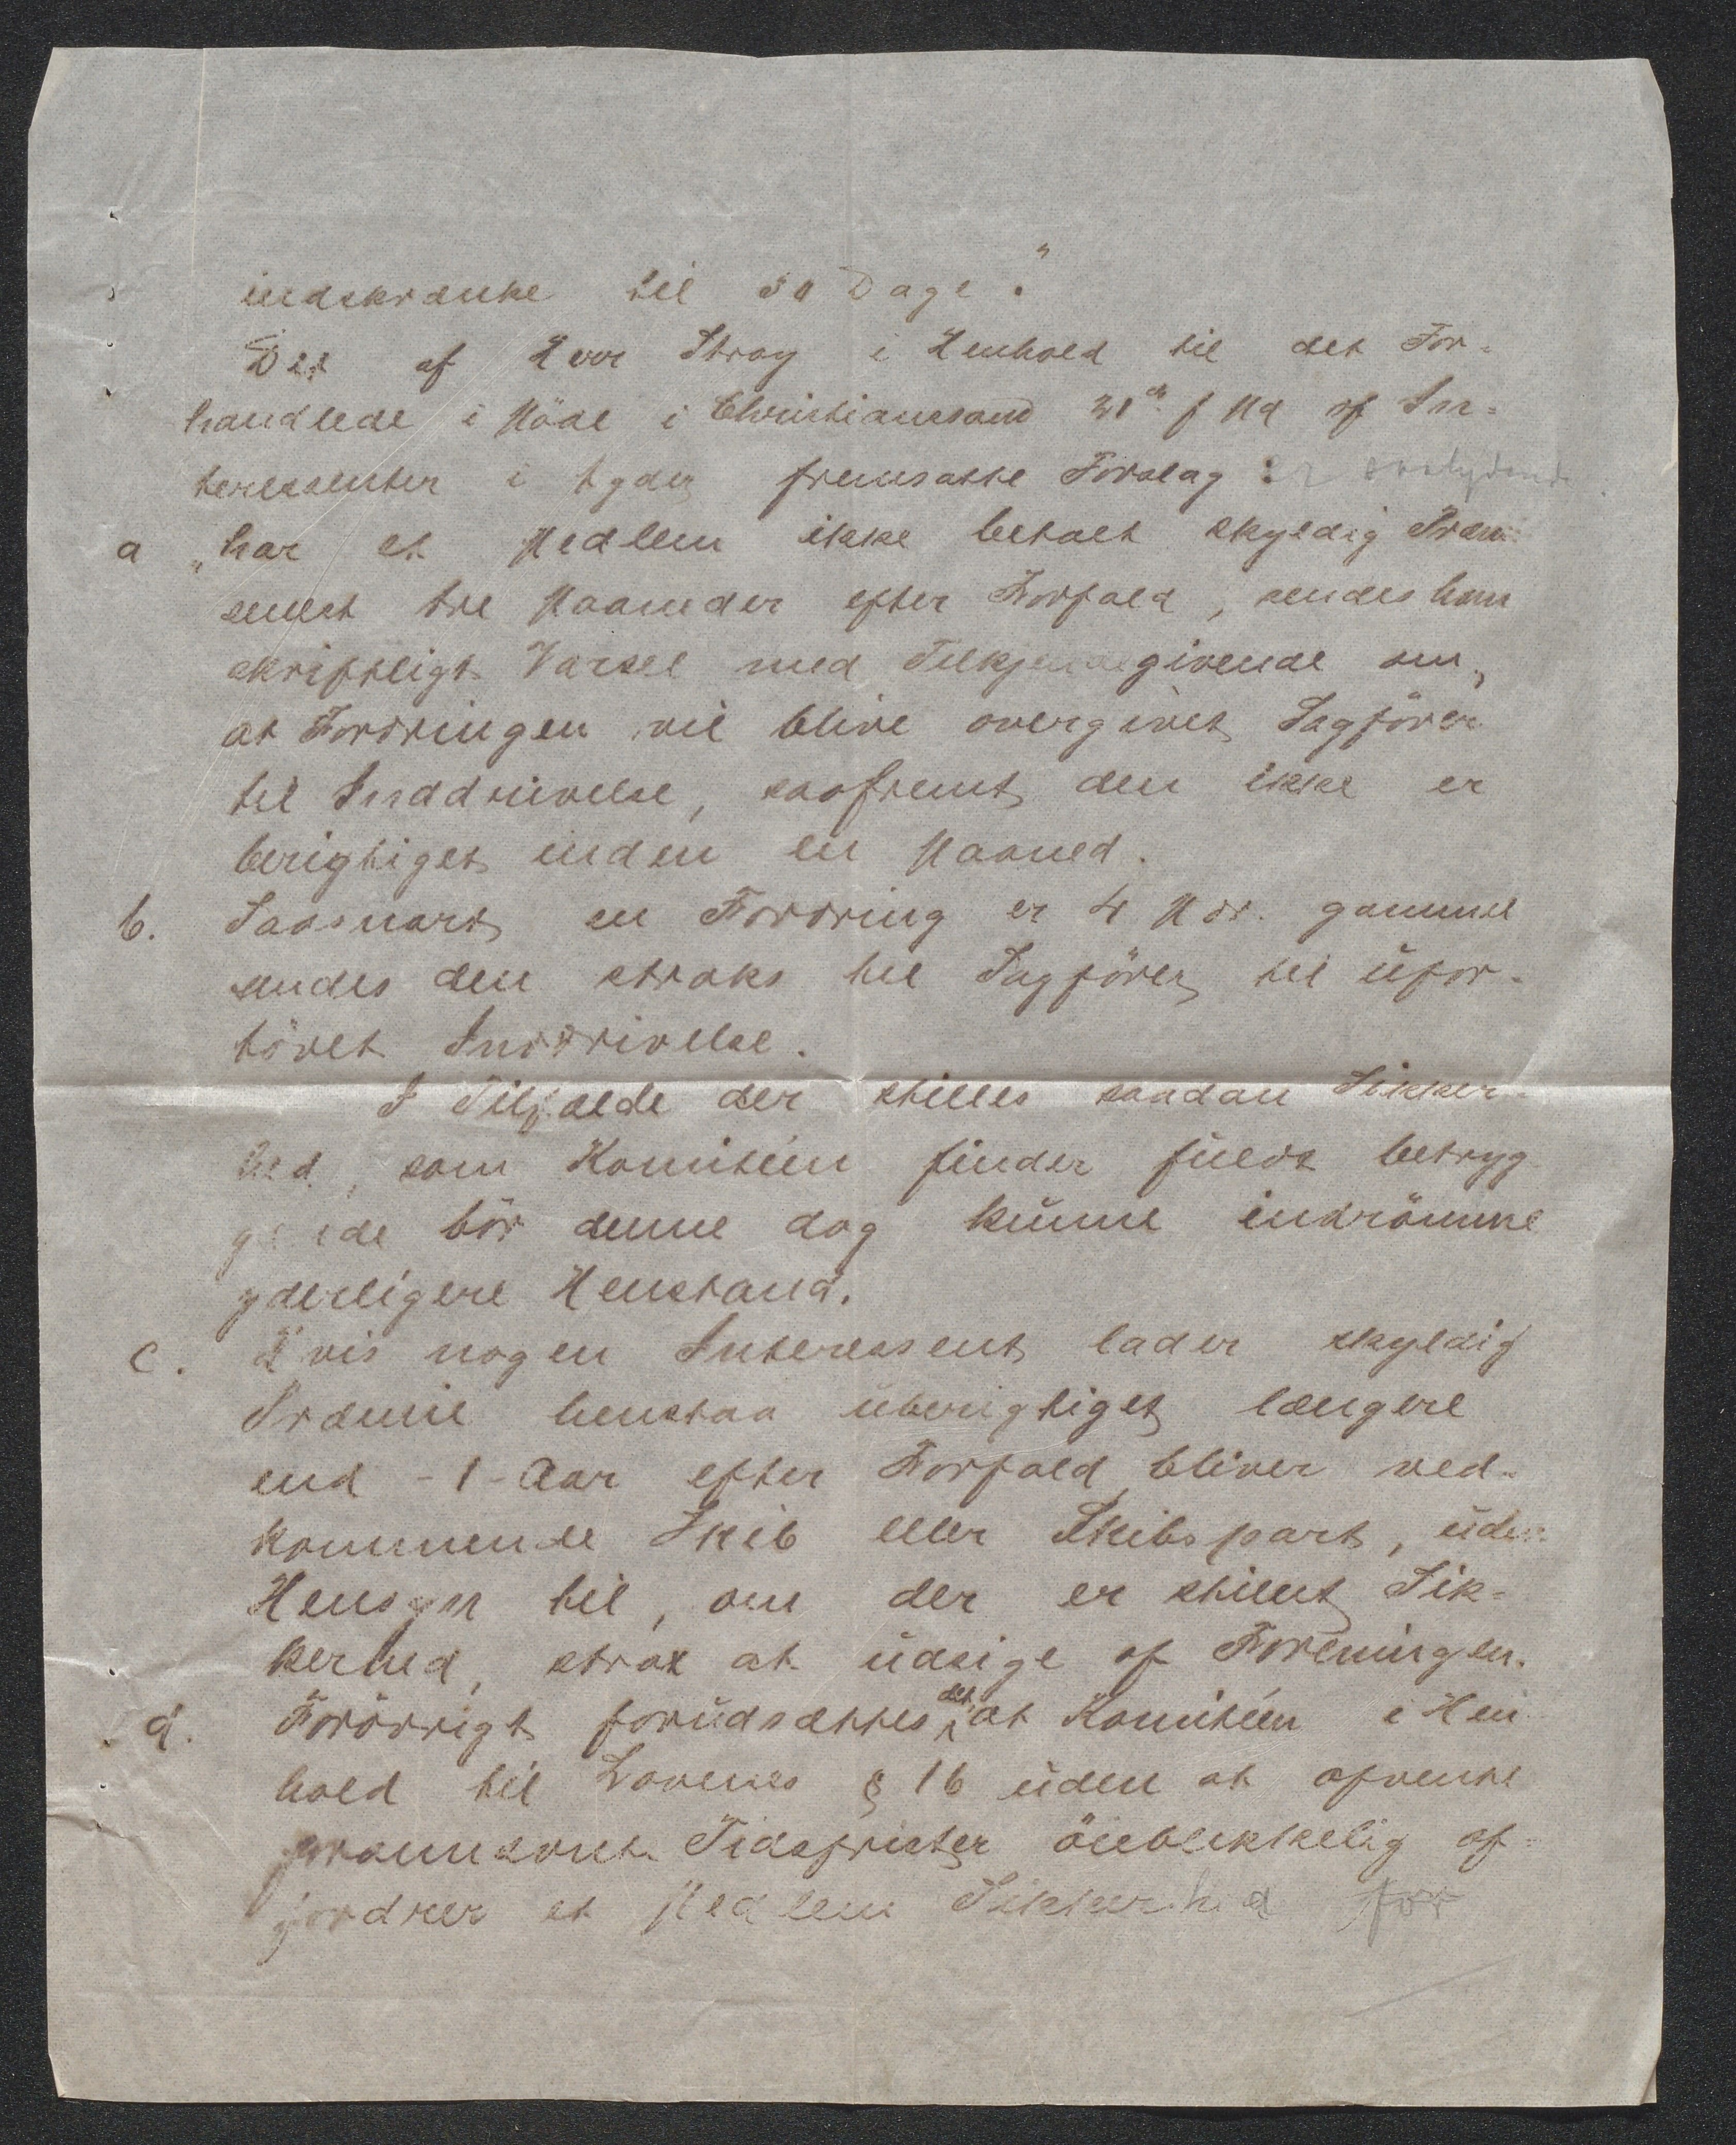 indskrænke til 30 Dage."
Det af Herr Stray i Henhold til det For-
handlede i Möde i Christianssand 21de f Md af In-
teressenter i Agder fremsatte Forslag :
a „har et Medlem ikke betalt skyldig Præmie
senest tre Maaneder efter Forfald, sendes ham
skriftligt Varsel med Tilkjendegivende om,
at Fordringen vil blive overgivet Sagförer
til Inddrivelse, saafremt den ikke er
berigtiget inden en Maaned.
b. Saasnart en Fordring er 4 Mdr. gammel
sendes den straks til Sagförer til ufor-
tövet Inddrivelse.
I Tilfælde der stilles saadan Sikker-
hed, som Komitéen finder fuldt betryg
gende bör denne dog kunne indrömme
yderligere Henstand.
c. Hvis nogen Interessent lader skyldig
Præmie henstaa uberigtiget længere
end -1- Aar efter Forfald bliver ved-
kommende Skib eller Skibspart, uden
Hensyn til, om der er stillet Sik-
kerhed, strax at udsige af Foreningen.
d. Forövrigt forudsættes det at Komitéen i Hen
hold til Lovenes § 16 uden at afvente
Tidsfrister öieblikkelig af-
fordrer et Medlem Sikkerhed for